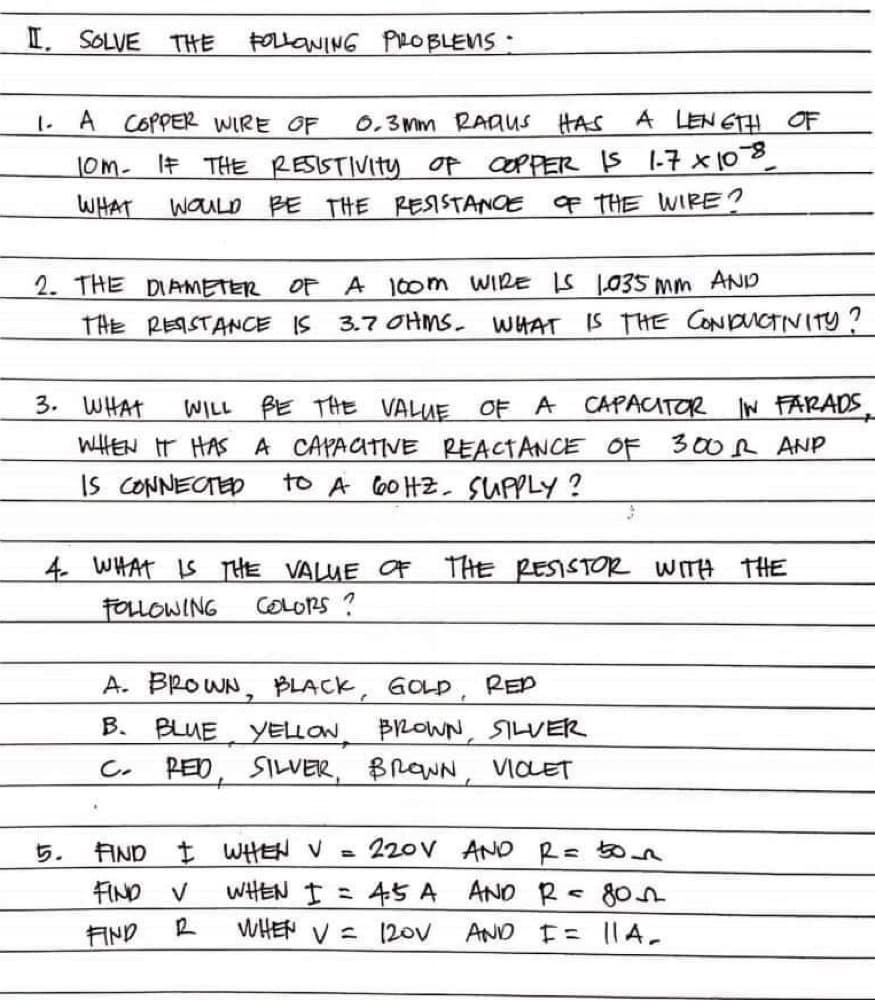 II. SOLVE THE FOLLOWING PROBLEMS:
1. A COPPER WIRE OF 0.3mm RADIUS HAS A LENGTH OF
10m. IF THE RESISTIVITY OF COPPER IS 1.7 x 10⁻⁸.
WHAT WOULD BE THE RESISTANCE OF THE WIRE?
2. THE DIAMETER OF A 100m WIRE IS 1.035 mm AND
THE RESISTANCE IS 3.7 OHMS. WHAT IS THE CONDUCTIVITY?
3. WHAT WILL BE THE VALUE OF A CAPACITOR IN FARADS,
WHEN IT HAS A CAPACITIVE REACTANCE OF 300 Ω AND
IS CONNECTED TO A 60 HZ. SUPPLY?
4. WHAT IS THE VALUE OF THE RESISTOR WITH THE
FOLLOWING COLORS?
A. BROWN, BLACK, GOLD, RED
B. BLUE, YELLOW, BROWN, SILVER
C. RED, SILVER, BROWN, VIOLET
5. FIND I WHEN V = 220V AND R = 50 Ω
FIND V WHEN I = 4.5 A AND R = 80 Ω
FIND R WHEN V = 120V AND I = 11 A.